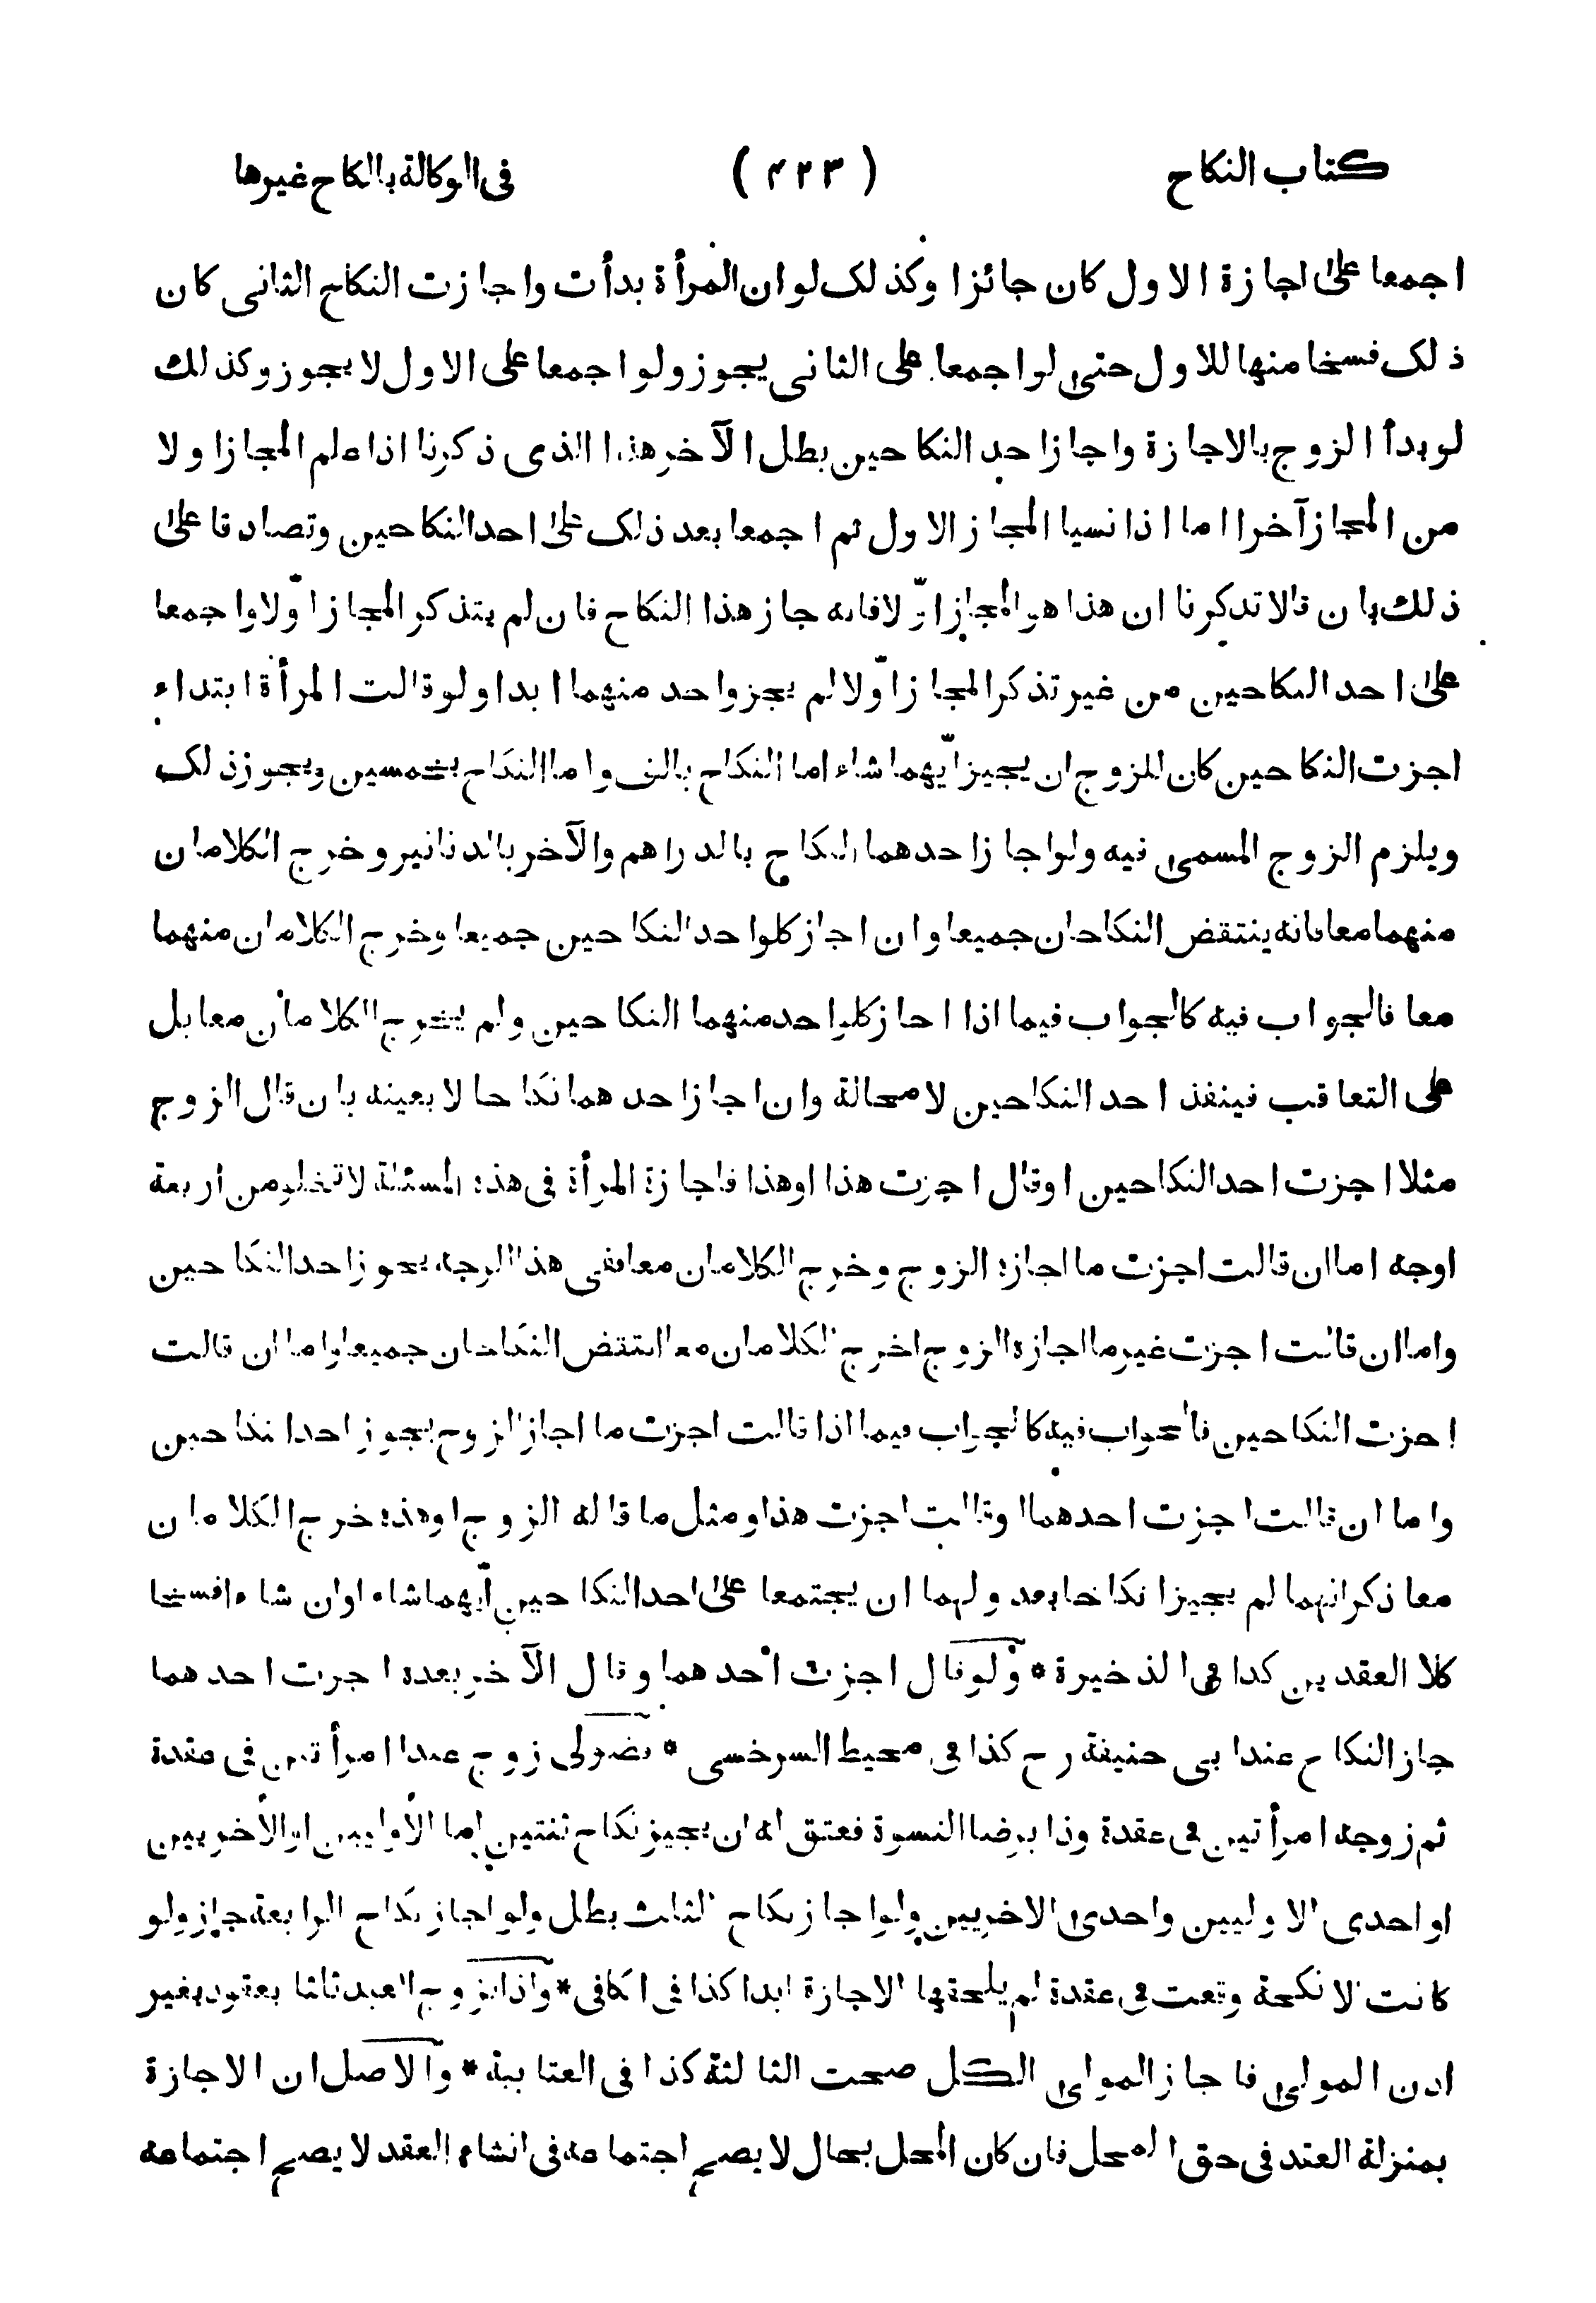 كتاب النكاح (٤٢٣) فى الوكالة بالنكاح غيرها
اجمعا على اجازة الاول كان جائزا وكذلك لو ان المرأة بدأت واجازت النكاح الثانى كان
ذلك فسخا منها للاول حتى لو اجمعا على الثانى يجوز ولو اجمعا على الاول لا يجوز وكذلك
لو بدأ الزوج بالاجازة واجاز احد النكاحين بطل الآخر هذا الذى ذكرنا اذا علم المجاز اولا
من المجاز آخرا اما اذا نسيا المجاز الاول ثم اجمعا بعد ذلك على احد النكاحين وتصادقا على
ذلك بان قالا تذكرنا ان هذا هو المجاز اوّلا فانه جاز هذا النكاح فان لم يتذكر المجاز اوّلا واجمعا
على احد النكاحين من غير تذكر المجاز اوّلا لم يجز واحد منهما ابدا ولو قالت المرأة ابتداء
اجزت النكاحين كان للزوج ان يجيز ايّهما شاء اما النكاح بالف واما النكاح بخمسين ويجوز ذلك
ويلزم الزوج المسمى فيه ولو اجاز احدهما النكاح بالدراهم والآخر بالدنانير وخرج الكلامان
منهما معا فانه ينتقض النكاحان جميعا وان اجاز كلواحد النكاحين جميعا وخرج الكلامان منهما
معا فالجواب فيه كالجواب فيما اذا اجاز كلواحد منهما النكاحين ولم يخرج الكلامان معا بل
على التعاقب فينفذ احد النكاحين لا محالة وان اجاز احدهما نكاحا لا بعينه بان قال الزوج
مثلا اجزت احد النكاحين او قال اجزت هذا او هذا فاجازة المرأة فى هذه المسئلة لا تخلو من اربعة
اوجه اما ان قالت اجزت ما اجازه الزوج وخرج الكلامان معا ففى هذا الوجه يجوز احد النكاحين
واما ان قالت اجزت غير ما اجازه الزوج اخرج الكلامان معا انتقض النكاحان جميعا واما ان قالت
اجزت النكاحين فالجواب فيه كالجواب فيما اذا قالت اجزت ما اجاز الزوج يجوز احد النكاحين
واما ان قالت اجزت احدهما او قالت اجزت هذا ومثل ما قاله الزوج او هذه خرج الكلامان
معا ذكر انهما لم يجيزا نكاحا بعد ولهما ان يجتمعا على احد النكاحين ايّهما شاء اوان شاء افسخا
كلا العقدين كذا فى الذخيرة * ولو قال اجزت احدهما وقال الآخر بعده اجزت احدهما
جاز النكاح عند ابى حنيفة رح كذا فى محيط السرخسى * فضولى زوج عبدا امرأتين فى عقدة
ثم زوجه امرأتين فى عقدة وذا برضا النسوة فعتق له ان يجيز نكاح ثنتين اما الأوليين او الأخريين
او احدى الاوليين واحدى الاخريين ولو اجاز نكاح الثلث بطل ولو اجاز نكاح الرابعة جاز ولو
كانت الانكحة وقعت فى عقدة لم يلحقها الاجازة ابدا كذا فى الكافى * واذا تزوج العبد ثلثا بعقود بغير
اذن المولى فاجاز المولى الكل صحت الثالثة كذا فى العتابية * والاصل ان الاجازة
بمنزلة العقد فى حق المحل فان كان المحل بحال لا يصح اجتماعه فى انشاء العقد لا يصح اجتماعه